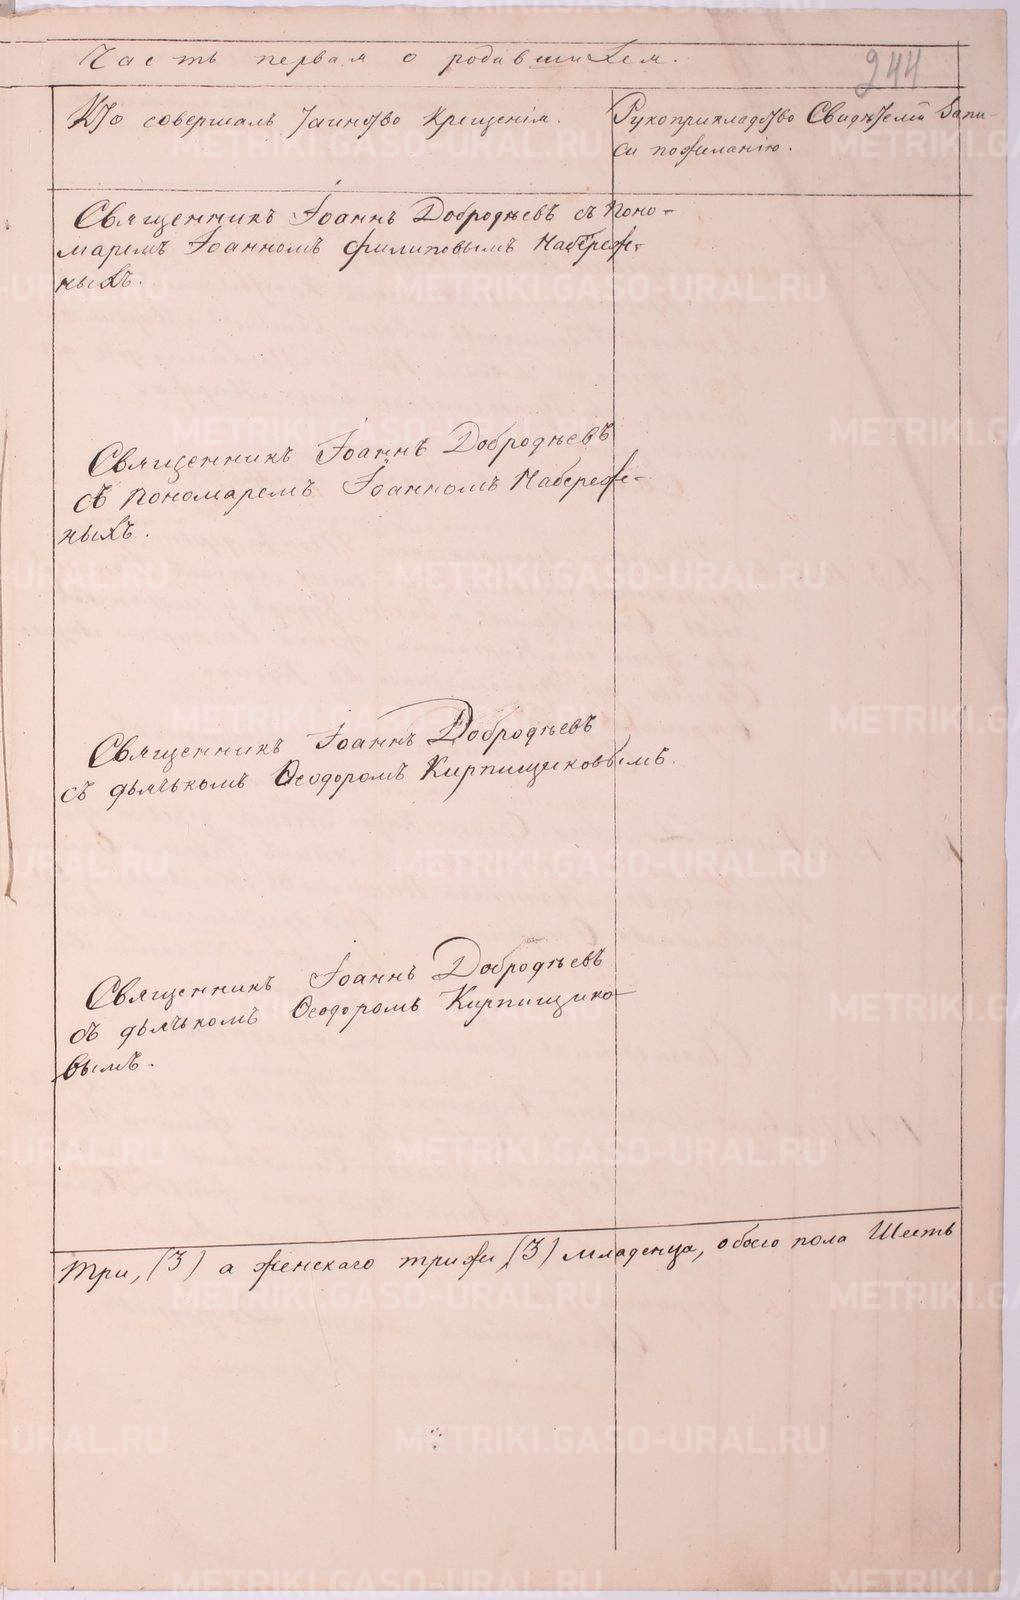 Часть первая о родившихся.
244
Кто совершалъ таинство крещенія.
Рукоприкладство Свидѣтелей запи-
си по желанію.
Священникъ Іоаннъ Добродѣевъ съ Поно-
маремъ Іоанномъ Филиповымъ Набереж-
ныхъ.
Священникъ Іоаннъ Добродѣевъ
съ Пономаремъ Іоанномъ Набереж-
ныхъ.
Священникъ Іоаннъ Добродѣевъ
съ дьячькомъ Ѳеодоромъ Кирпищиковымъ.
Священникъ Іоаннъ Добродѣевъ
съ дьячькомъ Ѳеодоромъ Кирпищико-
вымъ.
три, (3) а женскаго трижи, (3) младенца, обоего пола Шесть
METRIKI.GASO-URAL.RU